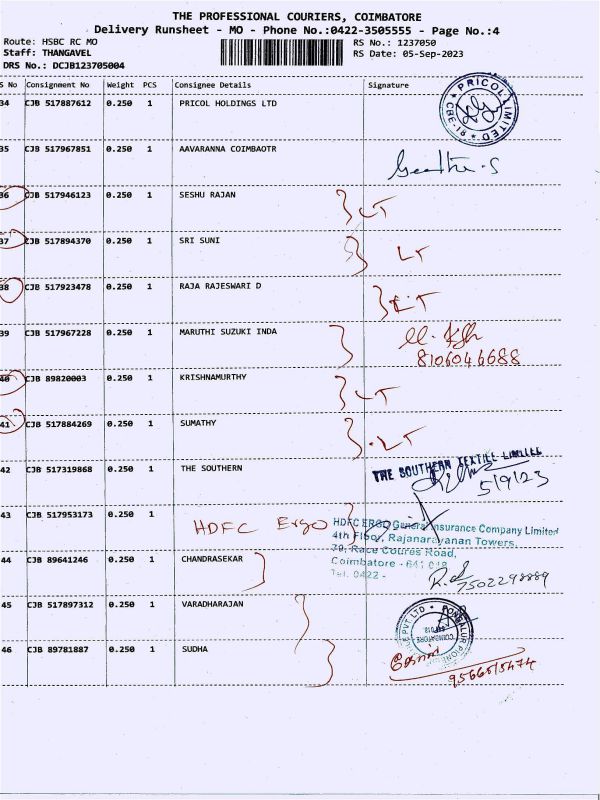 THE PROFESSIONAL COURIERS, COIMBATORE
Delivery Runsheet - MO - Phone No.:0422-3505555 - Page No.:4
Route: HSBC RC MO
RS No.: 1237050
Staff: THANGAVEL
RS Date: 05-Sep-2023
DRS No.: DCJB123705004
S No Consignment No Weight PCS Consignee Details Signature
34 CJB 517887612 0.250 1 PRICOL HOLDINGS LTD
PRICOL LIMITED CBE-18
35 CJB 517967851 0.250 1 AAVARANNA COIMBAOTR
Geetha.S
36 CJB 517946123 0.250 1 SESHU RAJAN LT
37 CJB 517894370 0.250 1 SRI SUNI LT
38 CJB 517923478 0.250 1 RAJA RAJESWARI D LT
39 CJB 517967228 0.250 1 MARUTHI SUZUKI INDA
8106046688
40 CJB 89820003 0.250 1 KRISHNAMURTHY LT
41 CJB 517884269 0.250 1 SUMATHY LT
42 CJB 517319868 0.250 1 THE SOUTHERN
THE SOUTHERN TEXTILE LIMITED
5/9/23
43 CJB 517953173 0.250 1 HDFC Ergo
HDFC ERGO General Insurance Company Limited
4th Floor, Rajanarayanan Towers,
79, Race Coures Road,
Coimbatore - 641 018
Tel. 0422 -
44 CJB 89641246 0.250 1 CHANDRASEKAR
7502298889
45 CJB 517897312 0.250 1 VARADHARAJAN
COIMBATORE
46 CJB 89781887 0.250 1 SUDHA
9566515474